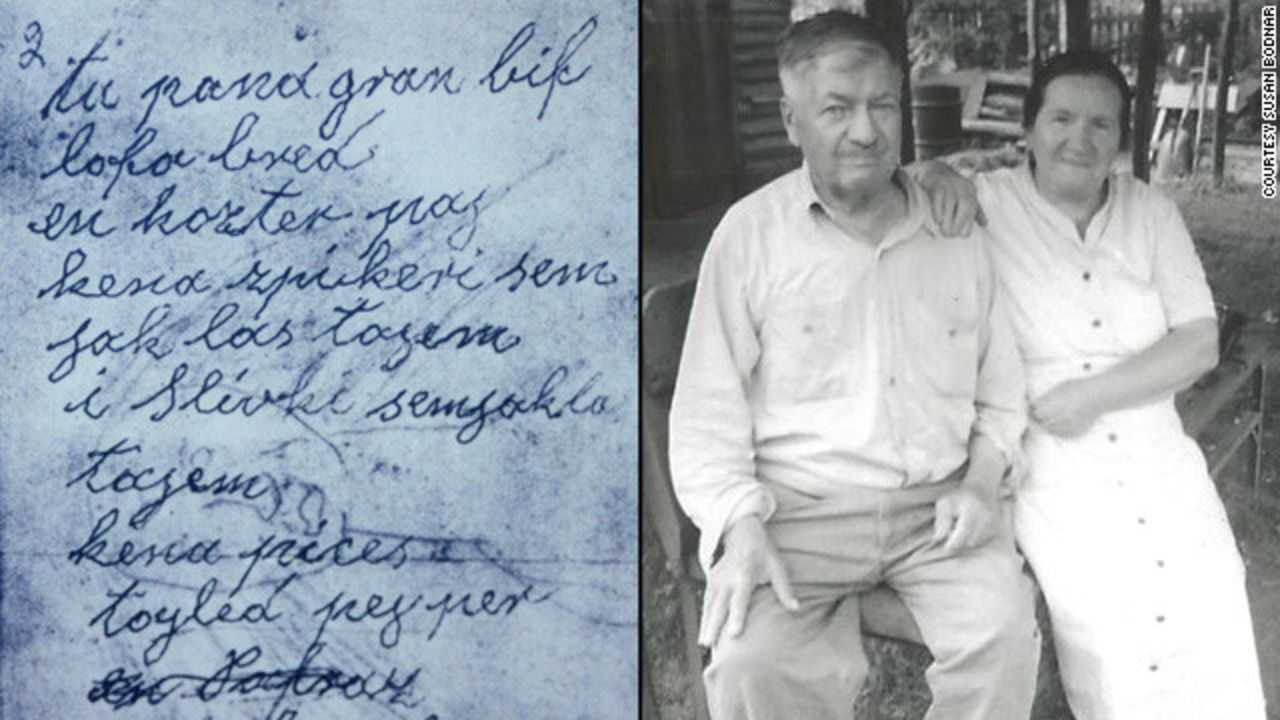 2
tu pana gran bif
lofa bred
en kozter paz
kena zpikeri sem
jak las tazem
i Slivki semjakla
tazem
kena pices
toyled pejper
en
COURTESY SUSAN BODNAR